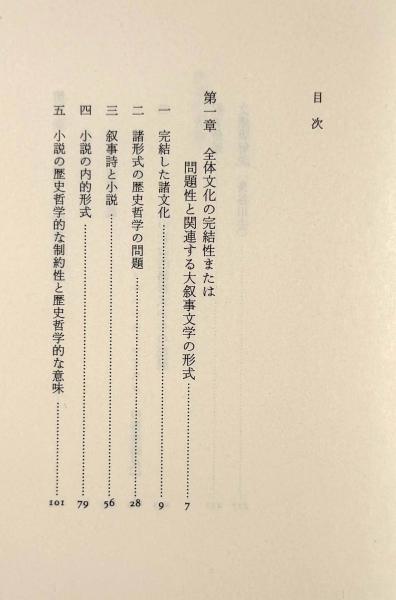 目次
第一章 全体文化の完結性または
問題性と関連する大叙事文学の形式……7
一 完結した諸文化……9
二 諸形式の歴史哲学の問題……28
三 叙事詩と小説……56
四 小説の内的形式……79
五 小説の歴史哲学的な制約性と歴史哲学的な意味……101